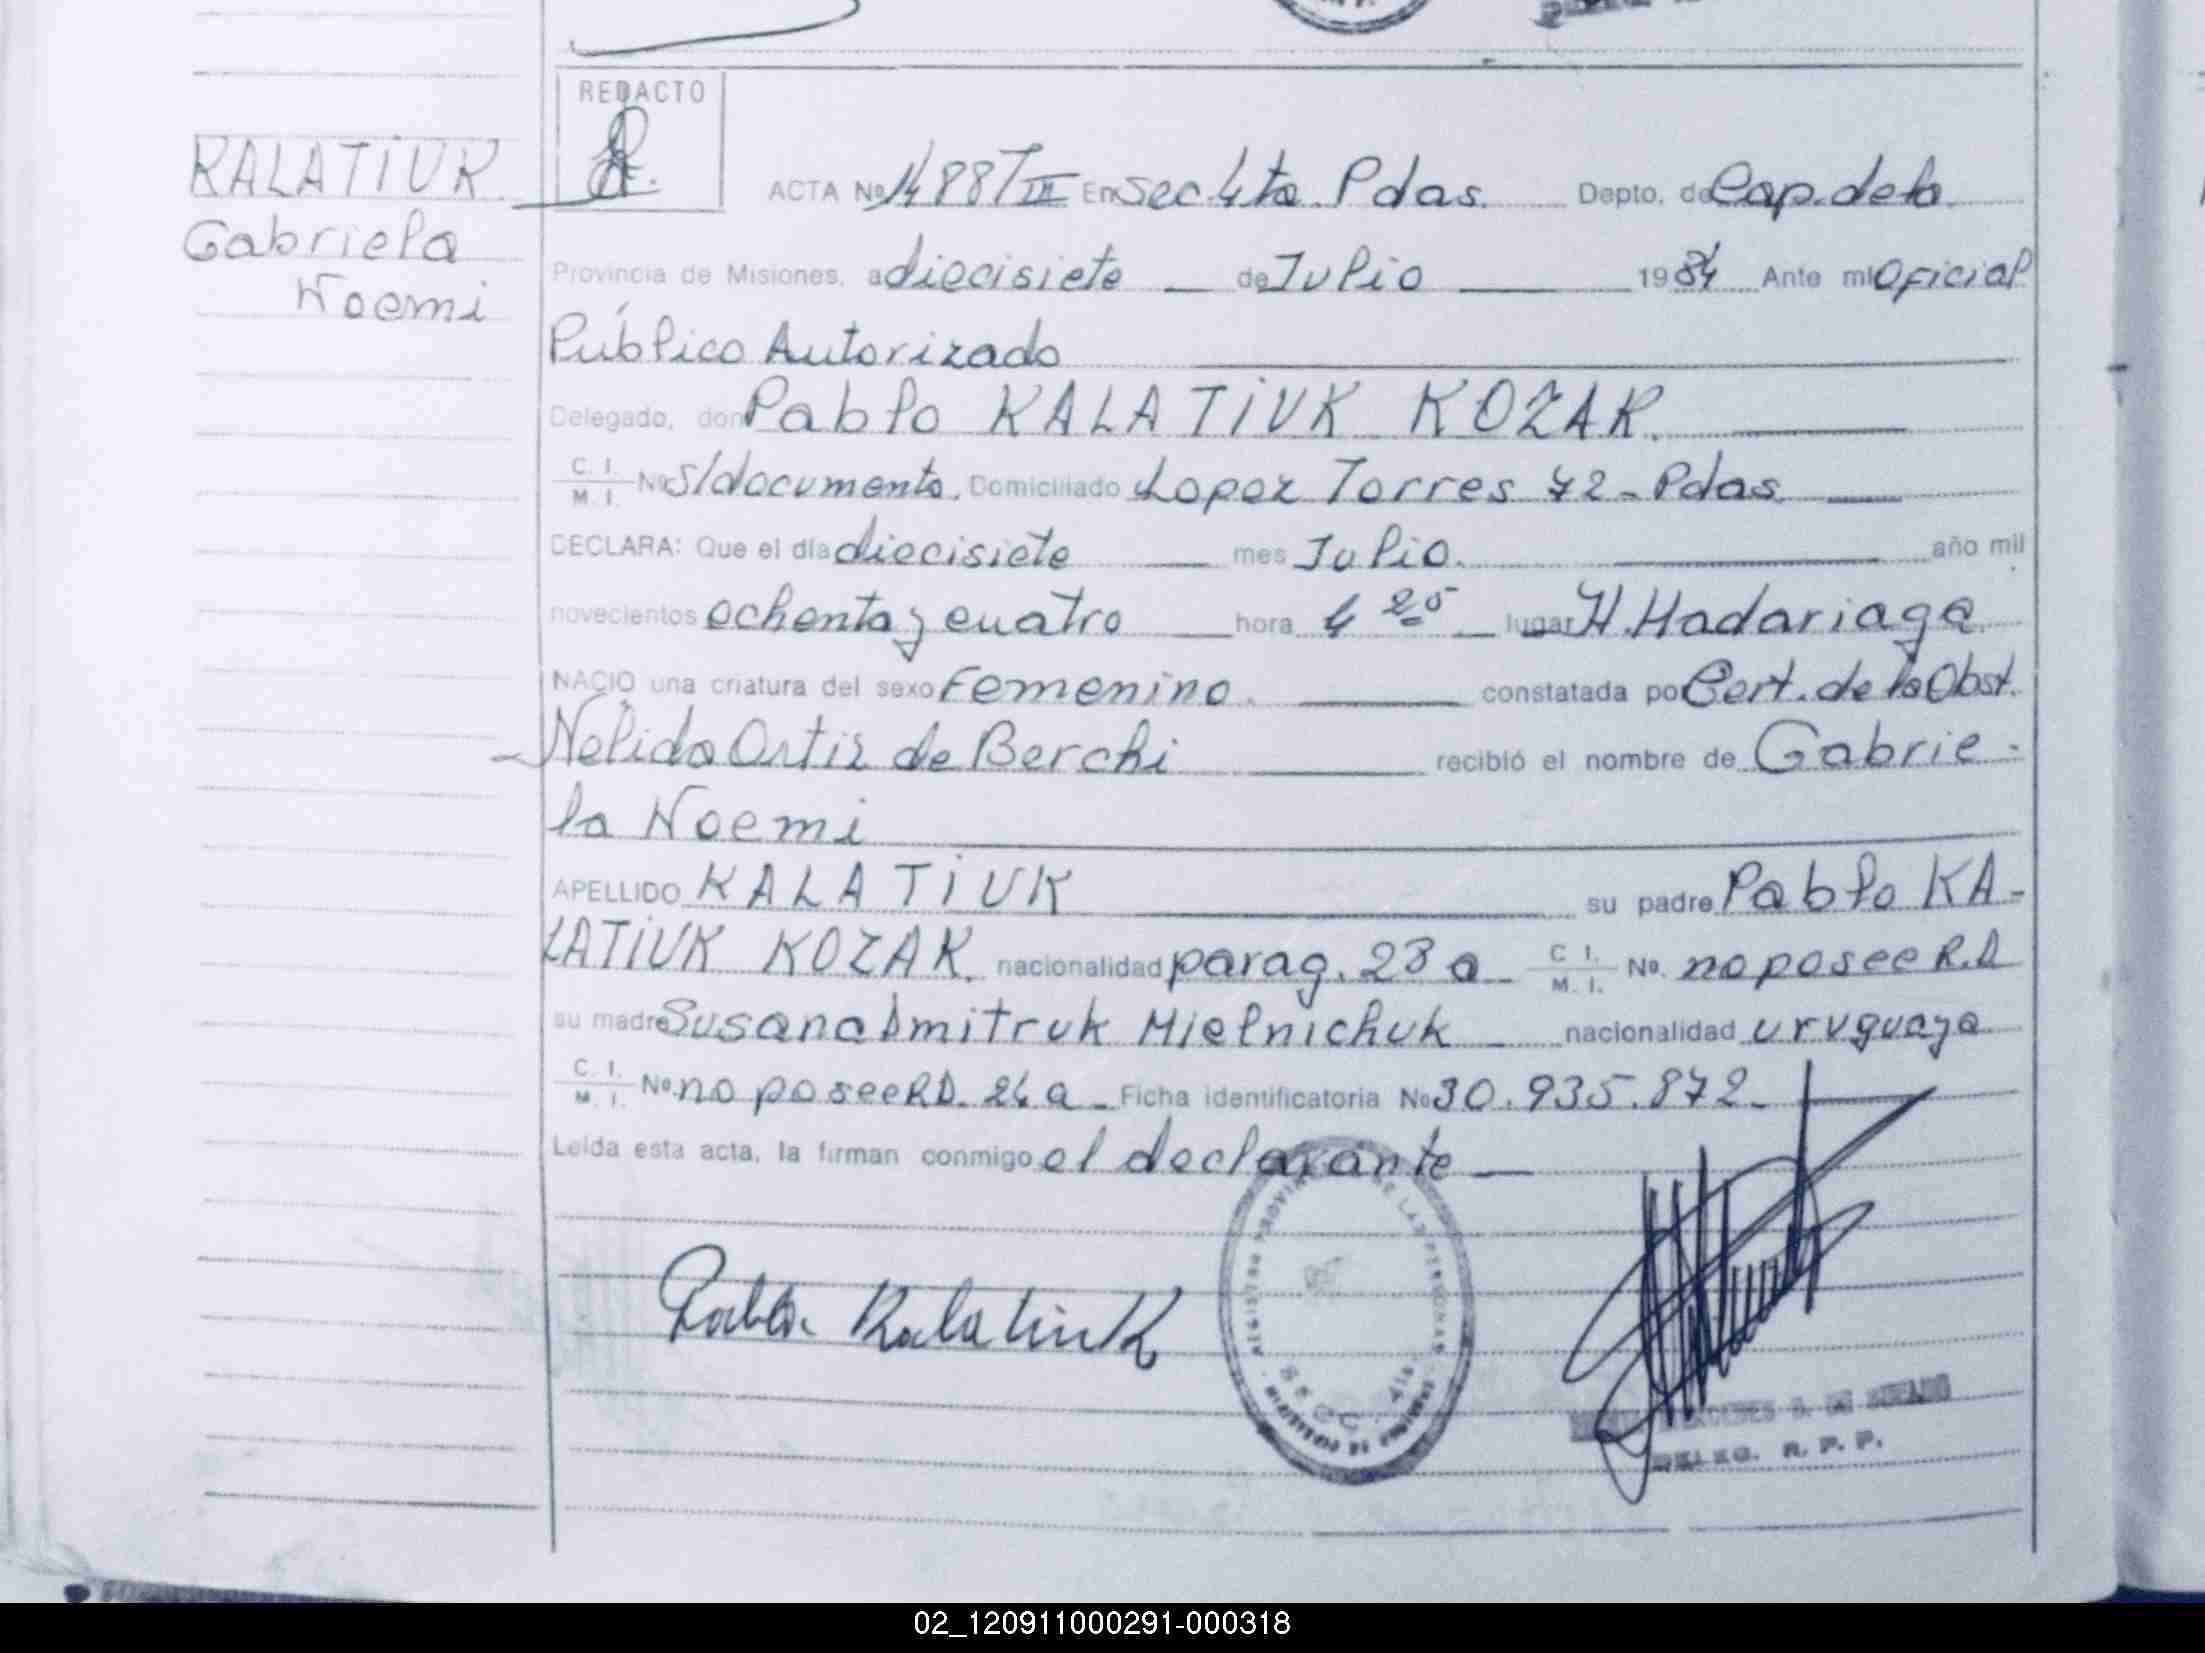 REDACTO
KALATIUK
Gabriela
Noemi
ACTA Nº 1488 T III En Sec 4ta Pdas. Depto. de Cap. de la
Provincia de Misiones, a diecisiete de Julio 1984 Ante mi Oficial
Público Autorizado
Delegado, don Pablo KALATIUK KOZAK.
C. I. M. I. Nº s/documento. Domiciliado Lopez Torres 72 - Pdas.
DECLARA: Que el día diecisiete mes Julio. año mil
novecientos ochenta y cuatro hora 4 20 lugar H. Madariaga.
NACIO una criatura del sexo Femenino. constatada po Cert. de la Obst.
Nélida Ortiz de Berchi recibió el nombre de Gabrie-
la Noemi
APELLIDO KALATIUK su padre Pablo KA-
LATIUK KOZAK. nacionalidad parag. 23 a C. I. M. I. Nº. no posee R.D
su madre Susana Dmitruk Mielnichuk nacionalidad uruguaya
C. I. M. I. Nº. no posee R.D. 24 a - Ficha identificatoria Nº 30.935.872-
Leída esta acta, la firman conmigo el declarante
Pablo KalatiuK
REGISTRO PROVINCIAL DE LAS PERSONAS
SECC. 4ta
DELEG. R. P. P.
02_120911000291-000318